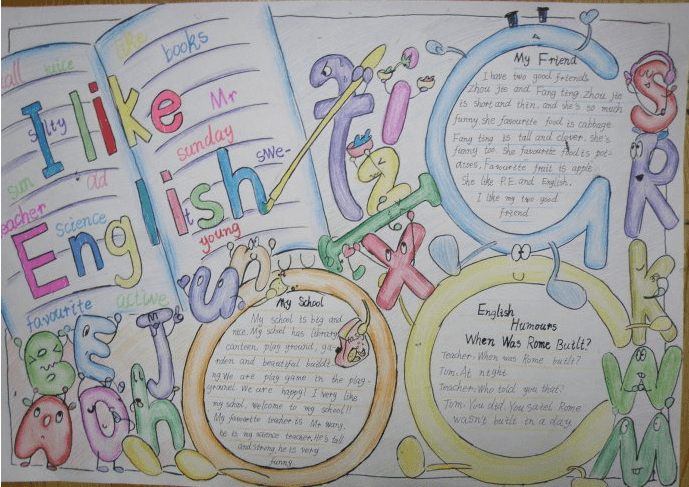 I like
English
call juice like books
salty Mr
sunday
sun ad swe-
teacher science it
young
favourite active
My Friend
I have two good friends
Zhou jie and Fang ting Zhou jie
is short and thin. and she's so much
funny she favourite food is cabbage
Fang ting is tall and clever. she's
funny too. She favourite food is pot-
atoes, Favourite fruit is apple
She like P.E. and English.
I like my two good
friend.
My School
My school is big and
nice. My school has library
canteen, play ground, ga-
rden and beautiful buildi
ng. We are play game in the play-
ground. We are happy! I very like
my school. welcome to my school!!
My favourite teacher is Mr Wang,
he is my science teacher. He's tall
and strong, he is very
funny.
English
Humours
When Was Rome Built?
Teacher: When was Rome built?
Tom: At night.
Teacher: Who told you that?
Tom: You did. You saied Rome
wasn't built in a day.
t i z I X
S R K W M
u n
B E J
A O h